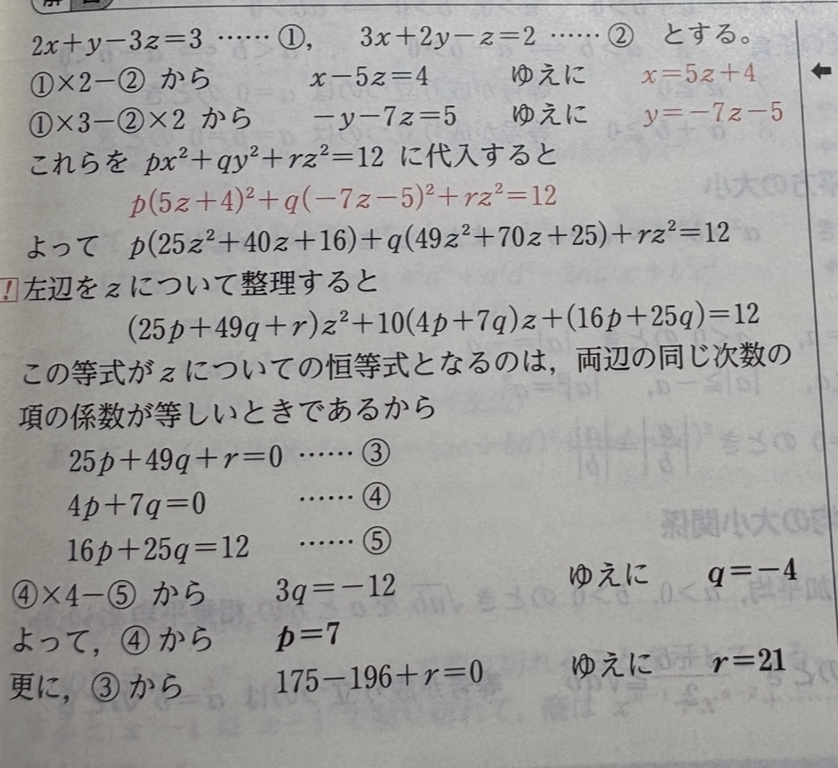 2x+y−3z=3 …… ①, 3x+2y−z=2 …… ② とする。
①×2−② から x−5z=4 ゆえに x=5z+4
①×3−②×2 から −y−7z=5 ゆえに y=−7z−5
これらを px²+qy²+rz²=12 に代入すると
p(5z+4)²+q(−7z−5)²+rz²=12
よって p(25z²+40z+16)+q(49z²+70z+25)+rz²=12
! 左辺を z について整理すると
(25p+49q+r)z²+10(4p+7q)z+(16p+25q)=12
この等式が z についての恒等式となるのは，両辺の同じ次数の
項の係数が等しいときであるから
25p+49q+r=0 …… ③
4p+7q=0 …… ④
16p+25q=12 …… ⑤
④×4−⑤ から 3q=−12 ゆえに q=−4
よって，④ から p=7
更に，③ から 175−196+r=0 ゆえに r=21